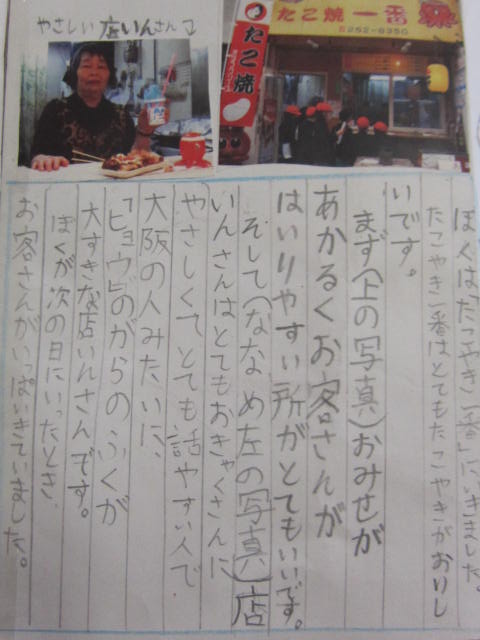 やさしい店いんさん
たこ焼一番
252-6350
たこ焼
ぼくは「たこやき一番」にいきました。
たこやき一番はとてもたこやきがおいし
いです。
まず(上の写真)おみせが
あかるくお客さんが
はいりやすい所がとてもいいです。
そして(ななめ左の写真)店
いんさんはとてもおきゃくさんに
やさしくてとても話やすい人で
大阪の人みたいに、
「ヒョウ」のがらのふくが
大すきな店いんさんです。
ぼくが次の日にいったとき、
お客さんがいっぱいきていました。